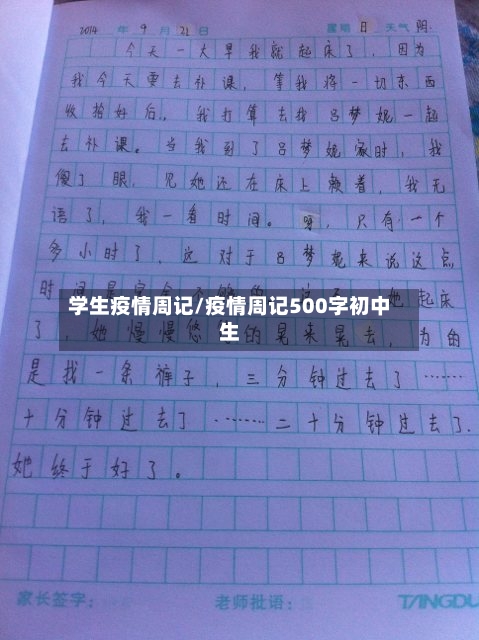 2014 年 9 月 21 日 星期 日 天气 阴
今天一大早我就起床了，因为
我今天要去补课，等我将一切东西
收拾好后，我打算去找吕梦妮一起
去补课。当我到了吕梦妮家时，我
傻了眼，见她还在床上赖着，我无
语了，我一看时间。呀，只有一个
多小时了，这对于吕梦妮来说这点
时间是完全不够的 她起床
学生疫情周记/疫情周记500字初中
生
了，她慢慢悠 的晃来晃去，为的
是找一条裤子，三分钟过去了……
十分钟过去了……二十分钟过去了.
她终于好了。
家长签字： 老师批语： TANGDU